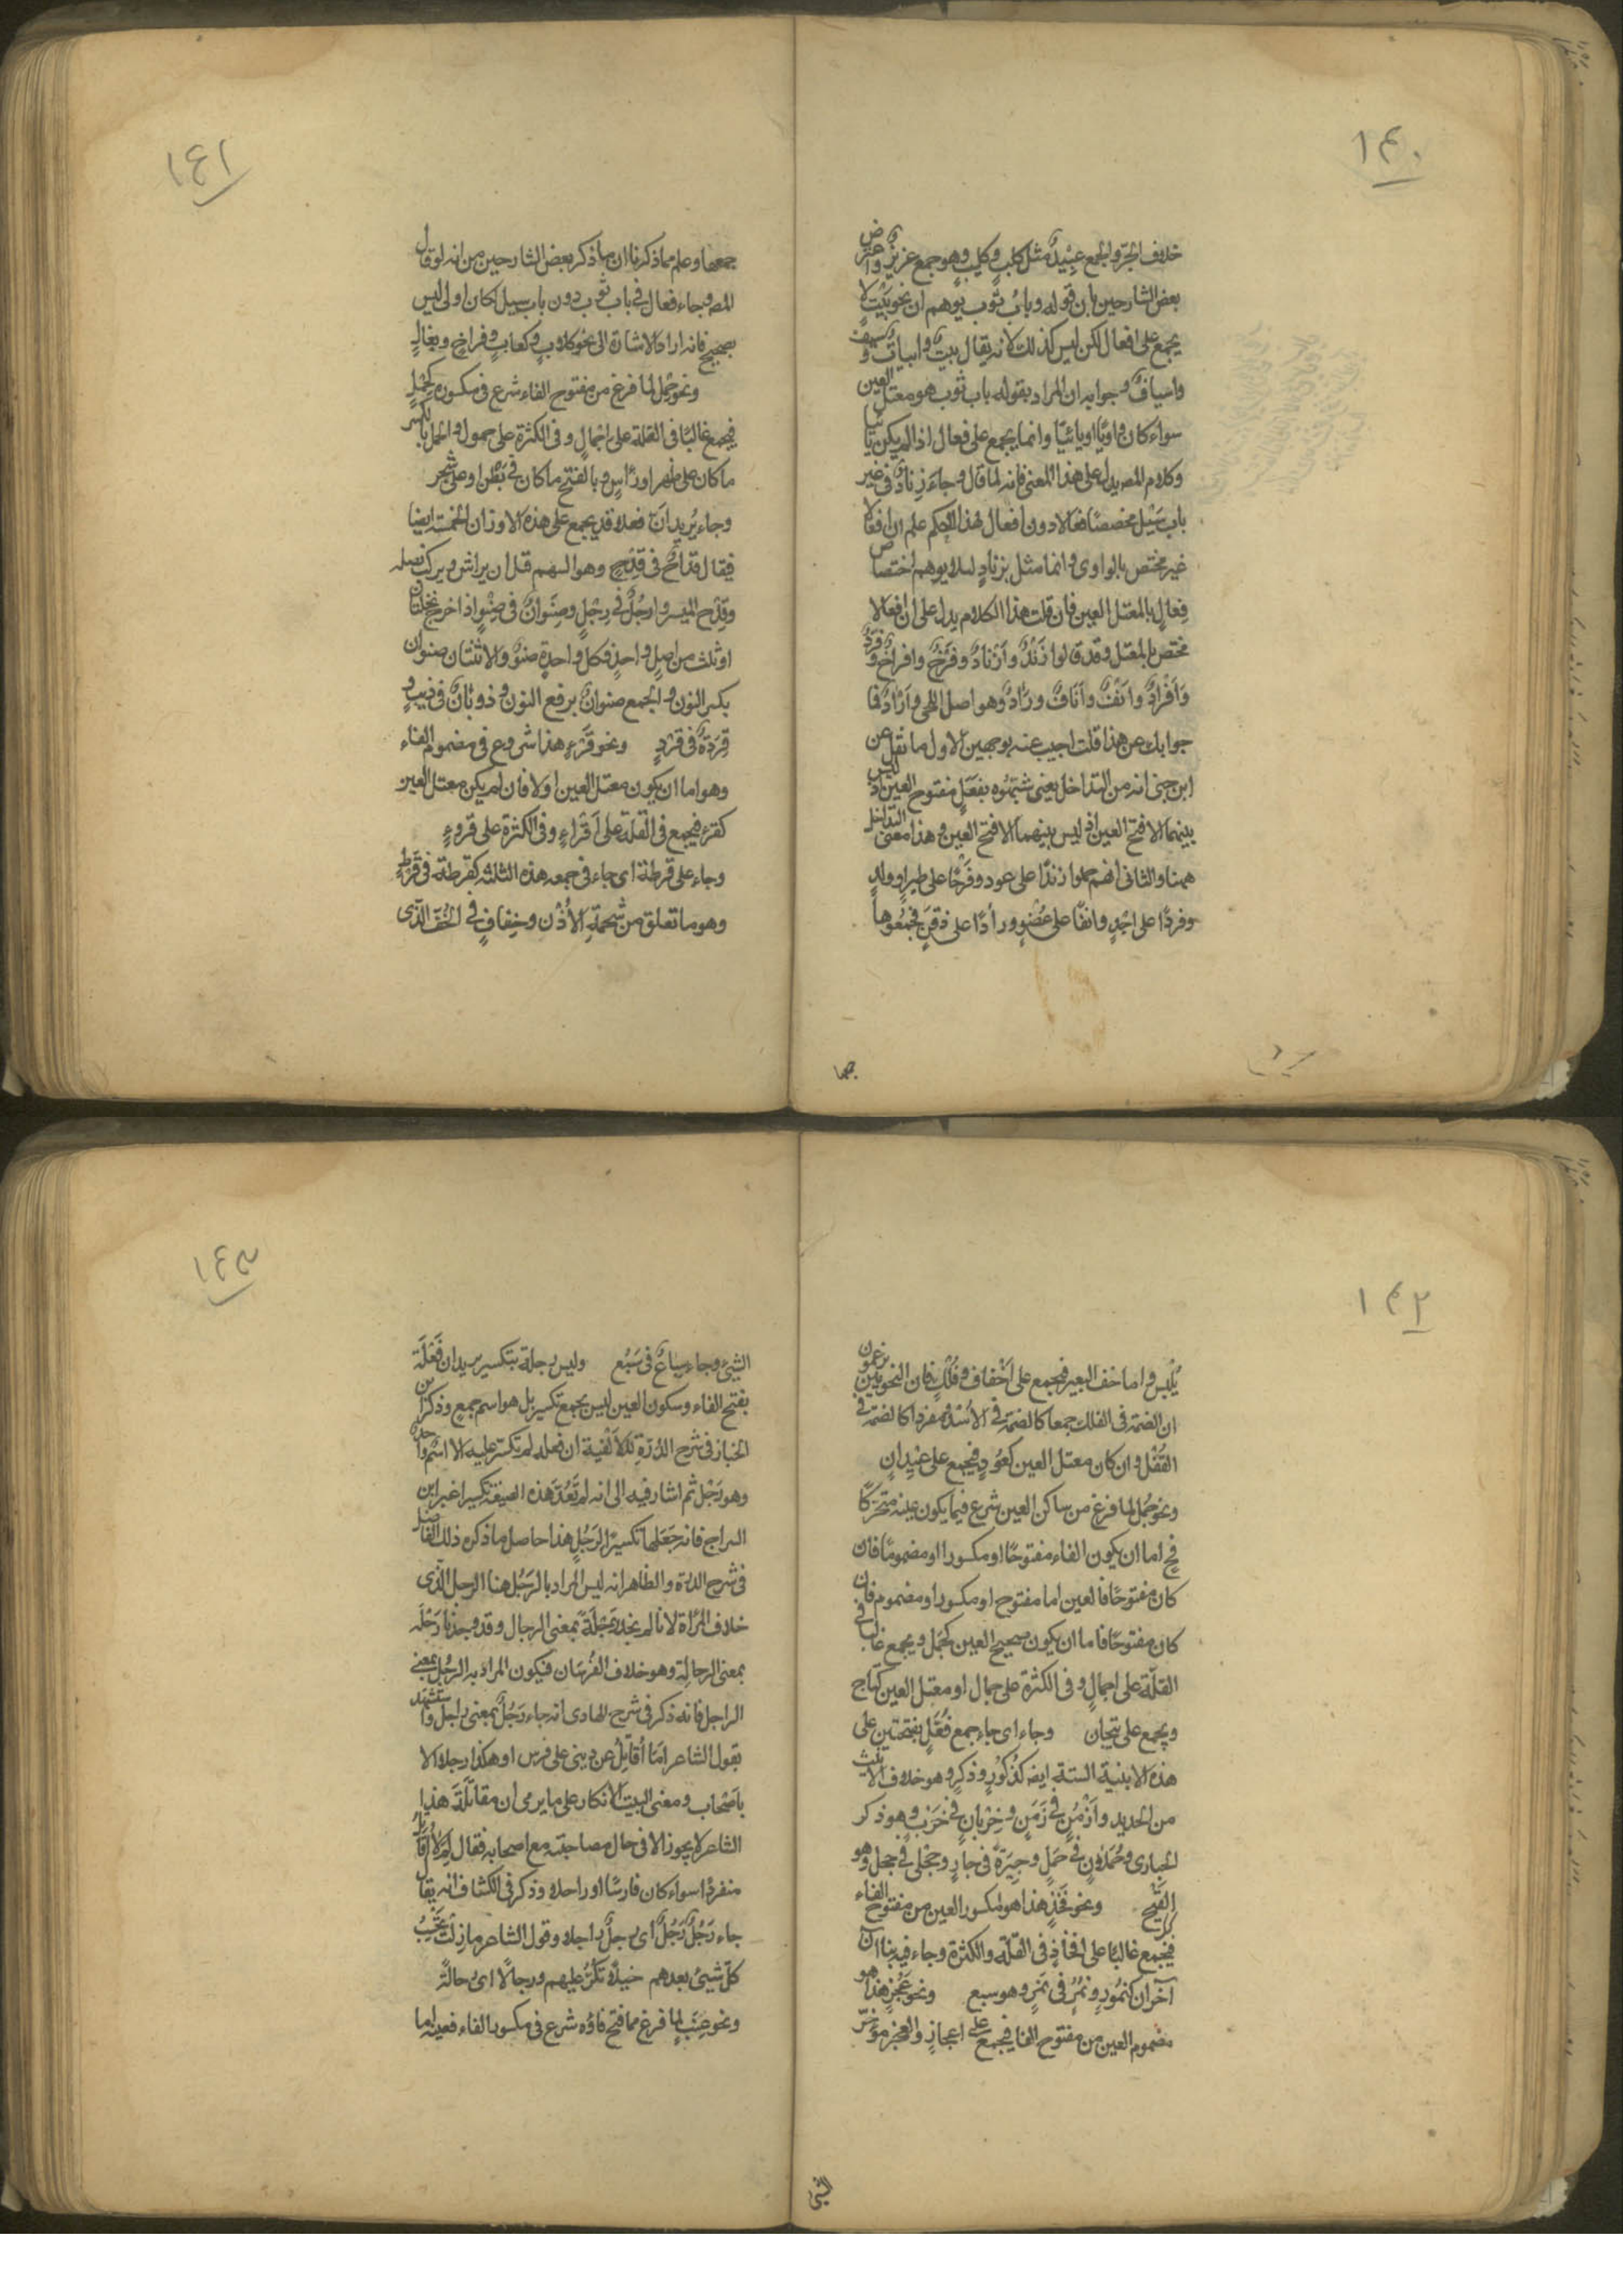 ١٤٠
خلاف الحر والجمع عبيد مثل كلب وكليب وهو جمع عزيز واعترض
بعض الشارحين بان قوله وباب ثوب يوهم ان نحو بيت لا
يجمع على افعال لكن ليس كذلك لانه يقال بيت وابيات وسيف
واسياف وجوابه ان المراد بقوله باب ثوب هو معتل العين
سواء كان واويا او يائيا وانما يجمع على فعال اذا لم يكن يائيا
وكلام المص يدل على هذا المعنى فانه لما قال وجاء زناد فى غير
باب سيل مخصصا فعالا دون افعال لهذا الحكم علم ان افعالا
غير مختص بالواوى وانما مثل بزناد لئلا يوهم اختصاص
فعال بالمعتل العين فان قلت هذا الكلام يدل على ان افعالا
مختص بالمعتل وقد قالوا زَنْدٌ وأَزْنادٌ وفَرْخٌ وافراخٌ وفَرْدٌ
وَأَفْرادٌ وانْفٌ وآنافٌ ورَأْدٌ وهو اصل اللحى وأرْآدٌ فما
جوابك عن هذا قلت اجيب عنه بوجهين الاول ما نقل عن
ابن جنى انه من التداخل يعنى شبّهوه بفَعَلٍ مفتوح العين اذ ليس
بينهما الا فتح العين اذ ليس بينهما الا فتح العين وهذا معنى التداخل
ههنا والثانى انهم حملوا زندًا على عود وفرخًا على طير او ولد
وفردًا على احد وانفًا على عُضْوٍ ورأدًا على ذقن فجمعوها
جمعها
١٤١
جمعها وعلم مما ذكرنا ان ما ذكر بعض الشارحين من انه لو قال
المص وجاء فعال فى باب ثوب دون باب سيل لكان اولى ليس
بصحيح فانه اراد الاشارة الى نحو كلاب وكعاب وفراخ وبغال
ونحو حِمْل لما فرغ من مفتوح الفاء شرع فى مكسوره كحِمْلٍ
فيجمع غالبًا فى القلة على احمال وفى الكثرة على حمول والحمل بالكسر
ما كان على ظهر او رأس وبالفتح ما كان فى بَطْن او على شجر
وجاء يُريد انّ فعلا قد يجمع على هذه الاوزان الخمسة ايضا
فيقال قداحٌ فى قِدْحٍ وهو السهم قبل ان يراش ويركب نصله
وقِدْح الميسر وارجُلٌ فى رِجْلٍ وصِنْوانٌ فى صِنْوٍ اذا خرج نخلتان
او ثلث من اصل واحد فكل واحدة صنوٌ والاثنتان صنوان
بكسر النون والجمع صنوانٌ برفع النون وذوبانٌ فى ذئب و
قِرَدَةٌ فى قردٍ ونحو قُرْءٍ هذا شروع فى مضموم الفاء
وهو اما ان يكون معتل العين اولا فان لم يكن معتل العين
كقرء فيجمع فى القلة على أَقْراءٍ وفى الكثرة على قروءٍ
وجاء على قرطة اى جاء فى جمعه هذه الثلثة كقرطة فى قُرْطٍ
وهو ما تعلق من شَحْمَةِ الأُذُن وخِفافٍ فى الخُفّ الّذى
١٤٢
يُلْبس واما خف البعير فيجمع على أَخْفاف وفُلْكٍ فان النحويين يزعمون
ان الضمة فى الفلك جمعا كالضمة فى الأُسْد ومفردا كالضمة فى
القُفْل وان كان معتل العين كعُودٍ فيجمع على عِيْدان
ونحو جَمَل لما فرغ من ساكن العين شرع فيما يكون عينه متحركًا
فح اما ان يكون الفاء مفتوحًا او مكسورا او مضمومًا فان
كان مفتوحًا فالعين اما مفتوح او مكسور او مضموم فان
كان مفتوحًا فاما ان يكون صحيح العين كجَمَل ويجمع غالبا فى
القلّة على اجمال وفى الكثرة على جمال او معتل العين كتاج
ويجمع على تيجان وجاء اى جاء جمع فَعَلٍ بفتحتين على
هذه الابنية الستة ايضا كذُكُورٍ وذكر وهو خلاف الانيث
من الحديد وأَزْمُنٍ فى زَمَنٍ وخِرْبانٍ فى خَرَبٍ وهو ذكر
الحبارى وحُمْلانٍ فى حَمَلٍ وجِيْرَةٍ فى جارٍ وحِجْلى فى حجل وهو
القَبَج ونحو فَخِذٍ هذا هو المكسور العين من مفتوح الفاء
فيجمع غالبًا على افخاذ فى القلّة والكثرة وجاء فيه بناآن
آخران كنُمُورٍ ونُمُرٍ فى نَمِرٍ وهو سبع ونحو عَجُزٍ هذا هو
مضموم العين من مفتوح الفا فيجمع على اعجازٍ والعجز مؤخر
الشيئ
١٤٣
الشيئ وجاء سِباعٌ فى سَبُع وليس رجلة بتكسير يريد ان فَعْلَة
بفتح الفاء وسكون العين ليس بجمع تكسير بل هو اسم جمع وذكر ابن
الخباز فى شرح الدُرّةِ للأَلْفية ان فعلة لم تكسّر عليه الا اسْم واحد
وهو رَجُل ثم اشار فيه الى انه لم تُعَدّ هذه الصيغة تكسيرا غير ابن
السراج فانه جَعَلَها تكسيرًا لرَجُلٍ هذا حاصل ما ذكره ذلك الفاضل
فى شرح الدرة والظاهر انه ليس المراد بالرَجُل هنا الرجل الّذى
خلاف المرْأة لانا لم نجد رَجْلَةً بمعنى الرجال وقد وجدنا رَجْلَه
بمعنى الرجالة وهو خلاف الفُرسَان فيكون المراد به الرجُل بمعنى
الراجل فانه ذكر فى شرح الهادى انه جاء رَجُلٌ بمعنى راجل واستشهد
بقول الشاعر أمَا أُقاتِلُ عن دينى على فرس او هكذا رجلا الا
باصْحاب ومعنى البيت الانكار على ما يرمى ان مقاتلَةَ هذا
الشاعر لا يجوز الا فى حال مصاحبته مع اصحابه فقال لم لا أُقاتل
منفردًا سواء كان فارسًا او راجلا وذكر فى الكشاف انه يقال
جاء رَجُلٌ رَجُلٌ اى رجلٌ راجلا وقول الشاعر
كلّ شيئ بعدهم خيلًا تَكُرُّ عليهم ورجالًا اى حالة
ونحو عِنَبٍ لما فرغ مما فتح فاؤه شرع فى مكسور الفاء فعينه اما